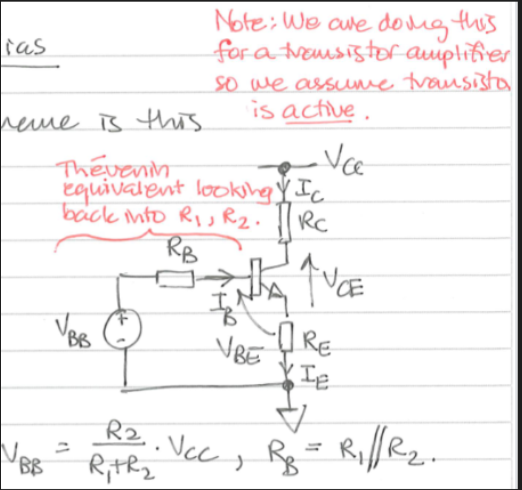 Note: We are doing this
for a transistor amplifier
so we assume transisto
is active.
ias
heme is this
Thévenin
equivalent looking
back into R₁, R₂.
V_CC
I_C
R_C
R_B
I_B
V_CE
V_BB
+
-
V_BE
R_E
I_E
V_BB = R2/(R₁+R₂) · V_CC , R_B = R₁//R₂.